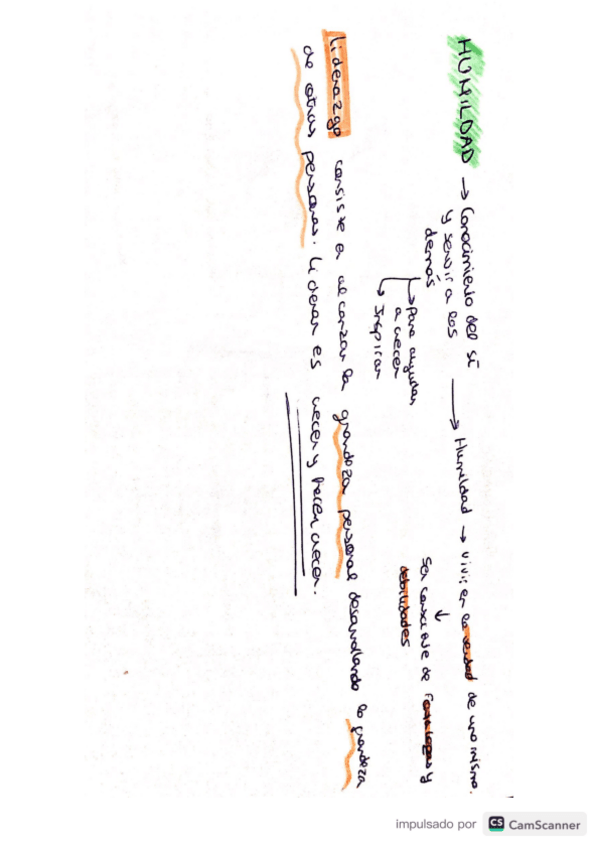 HUMILDAD → Conocimiento del sí
y servir a los
demás
→ Para ayudar
a crecer
→ Inspirar
→ Humildad → Vivir en la verdad de uno mismo.
↓
Ser consciente de fortalezas y
debilidades
Liderazgo consiste en alcanzar la grandeza personal desarrollando la grandeza
de otras personas. Liderar es crecer y hacer crecer.
impulsado por CS CamScanner